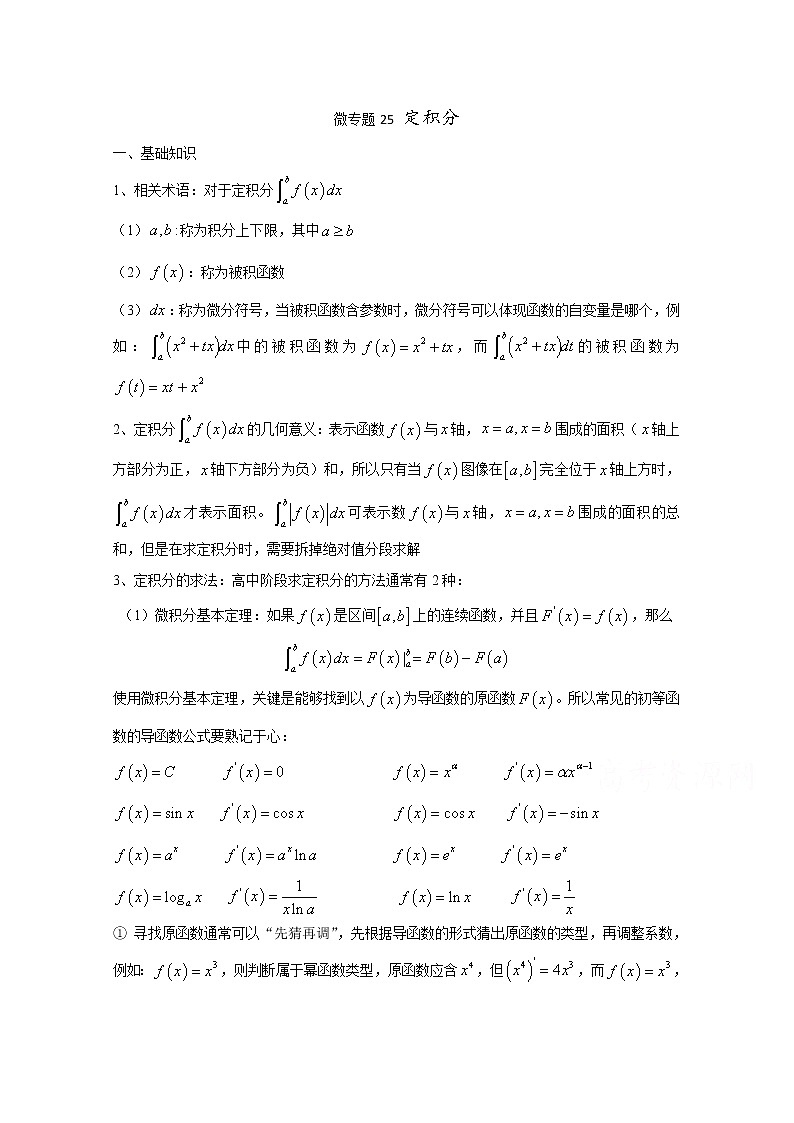 微专题25 定积分
一、基础知识
1、相关术语：对于定积分∫_a^b f(x)dx
（1）a,b:称为积分上下限，其中a≥b
（2）f(x)：称为被积函数
（3）dx：称为微分符号，当被积函数含参数时，微分符号可以体现函数的自变量是哪个，例
如：∫_a^b(x²+tx)dx中的被积函数为f(x)=x²+tx，而∫_a^b(x²+tx)dt的被积函数为
f(t)=xt+x²
2、定积分∫_a^b f(x)dx的几何意义：表示函数f(x)与x轴，x=a,x=b围成的面积（x轴上
方部分为正，x轴下方部分为负）和，所以只有当f(x)图像在[a,b]完全位于x轴上方时，
∫_a^b f(x)dx才表示面积。∫_a^b|f(x)|dx可表示数f(x)与x轴，x=a,x=b围成的面积的总
和，但是在求定积分时，需要拆掉绝对值分段求解
3、定积分的求法：高中阶段求定积分的方法通常有2种：
（1）微积分基本定理：如果f(x)是区间[a,b]上的连续函数，并且F'(x)=f(x)，那么
∫_a^b f(x)dx=F(x)|_a^b=F(b)−F(a)
使用微积分基本定理，关键是能够找到以f(x)为导函数的原函数F(x)。所以常见的初等函
数的导函数公式要熟记于心：
f(x)=C f'(x)=0 f(x)=x^α f'(x)=αx^(α−1)
f(x)=sin x f'(x)=cos x f(x)=cos x f'(x)=−sin x
f(x)=a^x f'(x)=a^x ln a f(x)=e^x f'(x)=e^x
f(x)=log_a x f'(x)=1/(x ln a) f(x)=ln x f'(x)=1/x
① 寻找原函数通常可以“先猜再调”，先根据导函数的形式猜出原函数的类型，再调整系数，
例如：f(x)=x³，则判断属于幂函数类型，原函数应含x⁴，但(x⁴)'=4x³，而f(x)=x³，